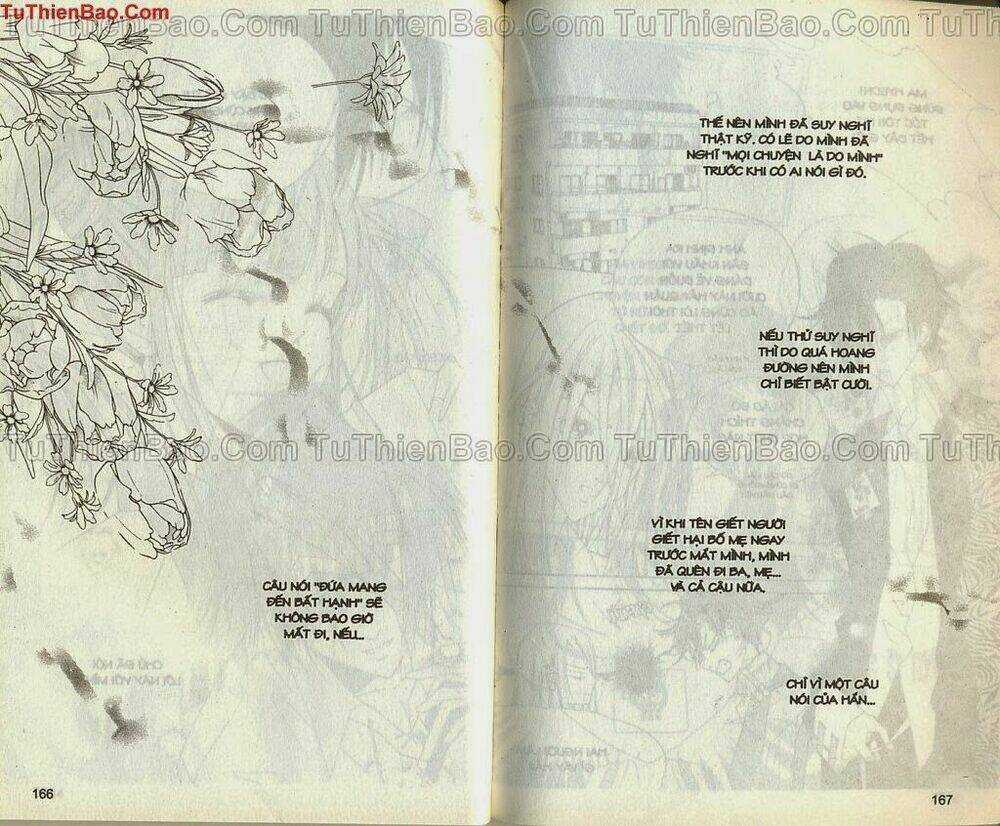 TuThienBao.Com
TuThienBao.Com TuThienBao.Com TuThienBao.Com TuThienBao.Com
THẾ NÊN MÌNH ĐÃ SUY NGHĨ
THẬT KỸ. CÓ LẼ DO MÌNH ĐÃ
NGHĨ "MỌI CHUYỆN LÀ DO MÌNH"
TRƯỚC KHI CÓ AI NÓI GÌ ĐÓ.
NẾU THỬ SUY NGHĨ
THÌ DO QUÁ HOANG
ĐƯỜNG NÊN MÌNH
CHỈ BIẾT BẬT CƯỜI.
TuThienBao.Com TuThienBao.Com TuThienBao.Com TuThienBao.Com
VÌ KHI TÊN GIẾT NGƯỜI
GIẾT HẠI BỐ MẸ NGAY
TRƯỚC MẮT MÌNH, MÌNH
ĐÃ QUÊN ĐI BA, MẸ...
VÀ CẢ CẬU NỮA.
CÂU NÓI "ĐỨA MANG
ĐẾN BẤT HẠNH" SẼ
KHÔNG BAO GIỜ
MẤT ĐI, NẾU...
CHỈ VÌ MỘT CÂU
NÓI CỦA HẮN...
166
167